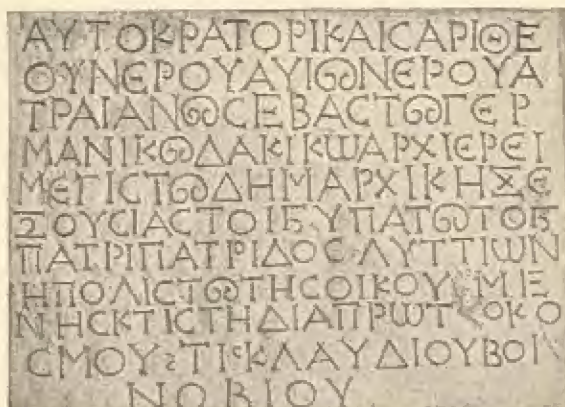 ΑΥΤΟΚΡΑΤΟΡΙΚΑΙCΑΡΙΘΕ
ΟΥΝΕΡΟΥΑΥΙΩΝΕΡΟΥΑ
ΤΡΑΙΑΝΩCΕΒΑCΤΩΓΕΡ
ΜΑΝΙΚΩΔΑΚΙΚΩΑΡΧΙΕΡΕΙ
ΜΕΓΙCΤΩΔΗΜΑΡΧΙΚΗΣΕ
ΞΟΥCΙΑCΤΟΙϚΥΠΑΤΩΤΟϚ
ΠΑΤΡΙΠΑΤΡΙΔΟC·ΛΥΤΤΙΩΝ
ΗΠΟΛΙCΤΩΤΗCΟΙΚΟΥΜΕ
ΝΗCΚΤΙCΤΗΔΙΑΠΡΩΤΟΚΟ
CΜΟΥ ΤΙ ΚΛΑΥΔΙΟΥΒΟΙ
ΝΟΒΙΟΥ